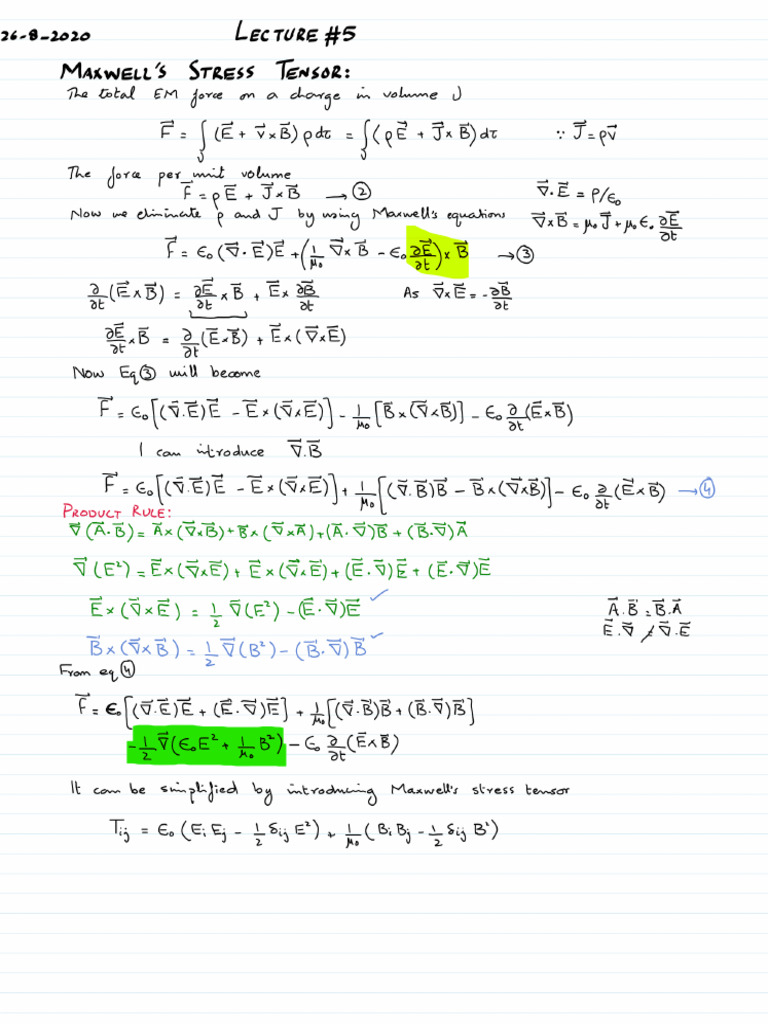 26-8-2020 LECTURE #5
MAXWELL'S STRESS TENSOR:
The total EM force on a charge in volume V
F⃗ = ∫_V (E⃗ + v⃗ × B⃗) ρdτ = ∫_V (ρE⃗ + J⃗ × B⃗) dτ ∵ J⃗ = ρv⃗
The force per unit volume
F⃗ = ρE⃗ + J⃗ × B⃗ → ② ∇⃗.E⃗ = ρ/ε₀
Now we eliminate ρ and J by using Maxwell's equations ∇⃗×B⃗ = μ₀J⃗ + μ₀ε₀ ∂E⃗/∂t
F⃗ = ε₀(∇⃗.E⃗)E⃗ + (1/μ₀ ∇⃗×B⃗ - ε₀ ∂E⃗/∂t) × B⃗ → ③
∂/∂t (E⃗×B⃗) = ∂E⃗/∂t × B⃗ + E⃗ × ∂B⃗/∂t As ∇⃗×E⃗ = -∂B⃗/∂t
∂E⃗/∂t × B⃗ = ∂/∂t (E⃗×B⃗) + E⃗×(∇⃗×E⃗)
Now Eq ③ will become
F⃗ = ε₀[(∇⃗.E⃗)E⃗ - E⃗×(∇⃗×E⃗)] - 1/μ₀ [B⃗×(∇⃗×B⃗)] - ε₀ ∂/∂t (E⃗×B⃗)
I can introduce ∇⃗.B⃗
F⃗ = ε₀[(∇⃗.E⃗)E⃗ - E⃗×(∇⃗×E⃗)] + 1/μ₀ [(∇⃗.B⃗)B⃗ - B⃗×(∇⃗×B⃗)] - ε₀ ∂/∂t (E⃗×B⃗) → ④
PRODUCT RULE:
∇⃗(A⃗.B⃗) = A⃗×(∇⃗×B⃗) + B⃗×(∇⃗×A⃗) + (A⃗.∇⃗)B⃗ + (B⃗.∇⃗)A⃗
∇⃗(E²) = E⃗×(∇⃗×E⃗) + E⃗×(∇⃗×E⃗) + (E⃗.∇⃗)E⃗ + (E⃗.∇⃗)E⃗
E⃗×(∇⃗×E⃗) = 1/2 ∇⃗(E²) - (E⃗.∇⃗)E⃗ ✓ A⃗.B⃗ = B⃗.A⃗
B⃗×(∇⃗×B⃗) = 1/2 ∇⃗(B²) - (B⃗.∇⃗)B⃗ ✓ E⃗.∇⃗ ≠ ∇⃗.E⃗
From eq ④
F⃗ = ε₀[(∇⃗.E⃗)E⃗ + (E⃗.∇⃗)E⃗] + 1/μ₀ [(∇⃗.B⃗)B⃗ + (B⃗.∇⃗)B⃗]
- 1/2 ∇⃗(ε₀E² + 1/μ₀ B²) - ε₀ ∂/∂t (E⃗×B⃗)
It can be simplified by introducing Maxwell's stress tensor
Tij = ε₀(Ei Ej - 1/2 δij E²) + 1/μ₀ (Bi Bj - 1/2 δij B²)